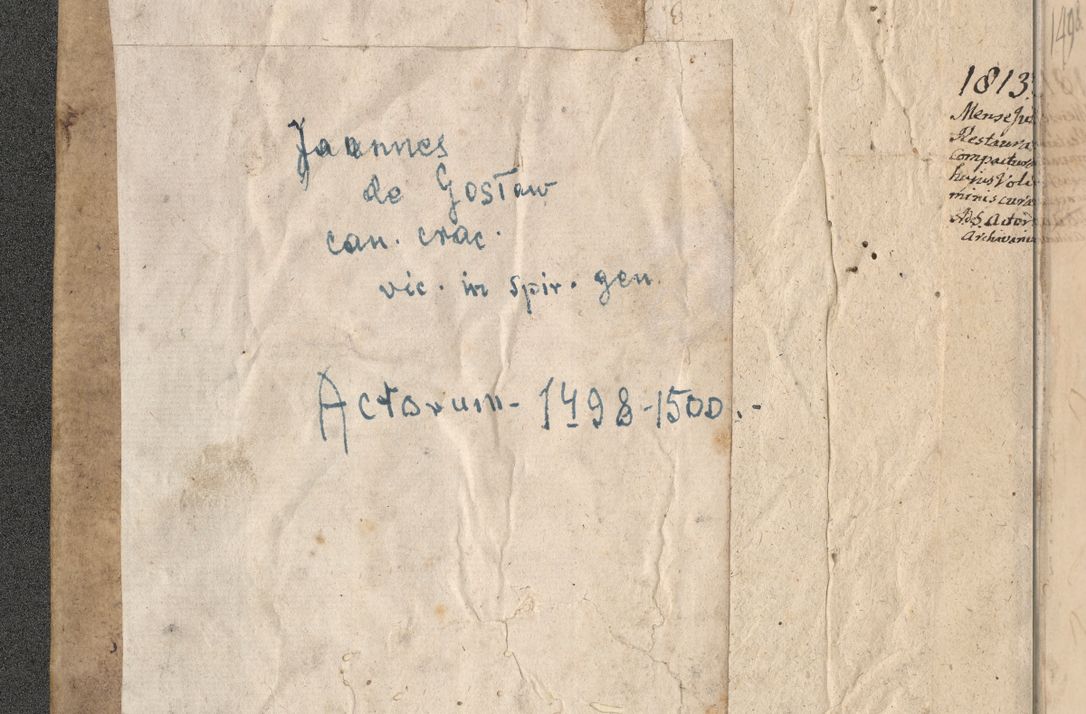 Joannes
de Gostaw
can. crac.
vic. in spir. gen.
Actorum - 1498-1500.-
1813
Mense Ju
Restaura
Compactura
hujus Volu
minis cura
Actor
Archivariu
149